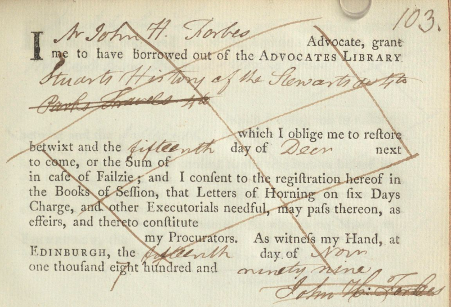 103.
I Mr John H. Forbes Advocate, grant
me to have borrowed out of the ADVOCATES LIBRARY
Stuarts History of the Stewarts 4to
Parks Travels 4to
which I oblige me to restore
betwixt and the fifteenth day of Decr next
to come, or the Sum of
in case of Failzie; and I consent to the registration hereof in
the Books of Session, that Letters of Horning on six Days
Charge, and other Executorials needful, may pass thereon, as
effeirs, and thereto constitute
my Procurators. As witness my Hand, at
EDINBURGH, the fifteenth day of Novr
one thousand eight hundred and ninety nine
John H. Forbes